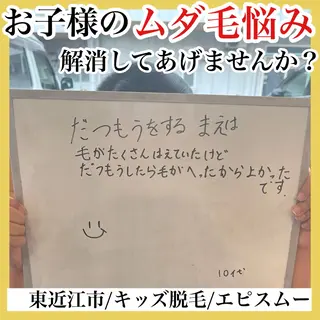 お子様のムダ毛悩み
解消してあげませんか？
だつもうをする まえは
毛がたくさんはえていたけど
だつもうしたら毛がへったから上かった
です.
10代
東近江市/キッズ脱毛/エピスムー